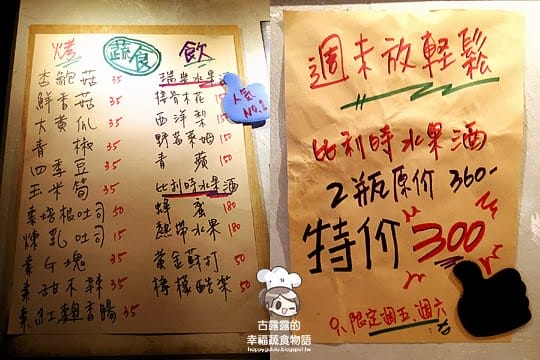 烤 蔬食 飲
杏鮑菇 35
鮮香菇 35
大黃瓜 35
青椒 35
四季豆 35
玉米筍 35
素培根吐司 50
煉乳吐司 15
素 塊 35
素甜不辣 35
素紅麴香腸 35
瑞典水果酒
接骨木花 150
西洋梨 150
野莓萊姆 150
青蘋 150
比利時水果酒
蜂蜜 180
熱帶水果 180
黃金蘇打 50
檸檬酷茶 50
人氣
NO.1
週末放輕鬆
比利時水果酒
2瓶原价 360-
特价 300
限定週五、週六
古露露的
幸福蔬食物語
happygululu.blogspot.tw